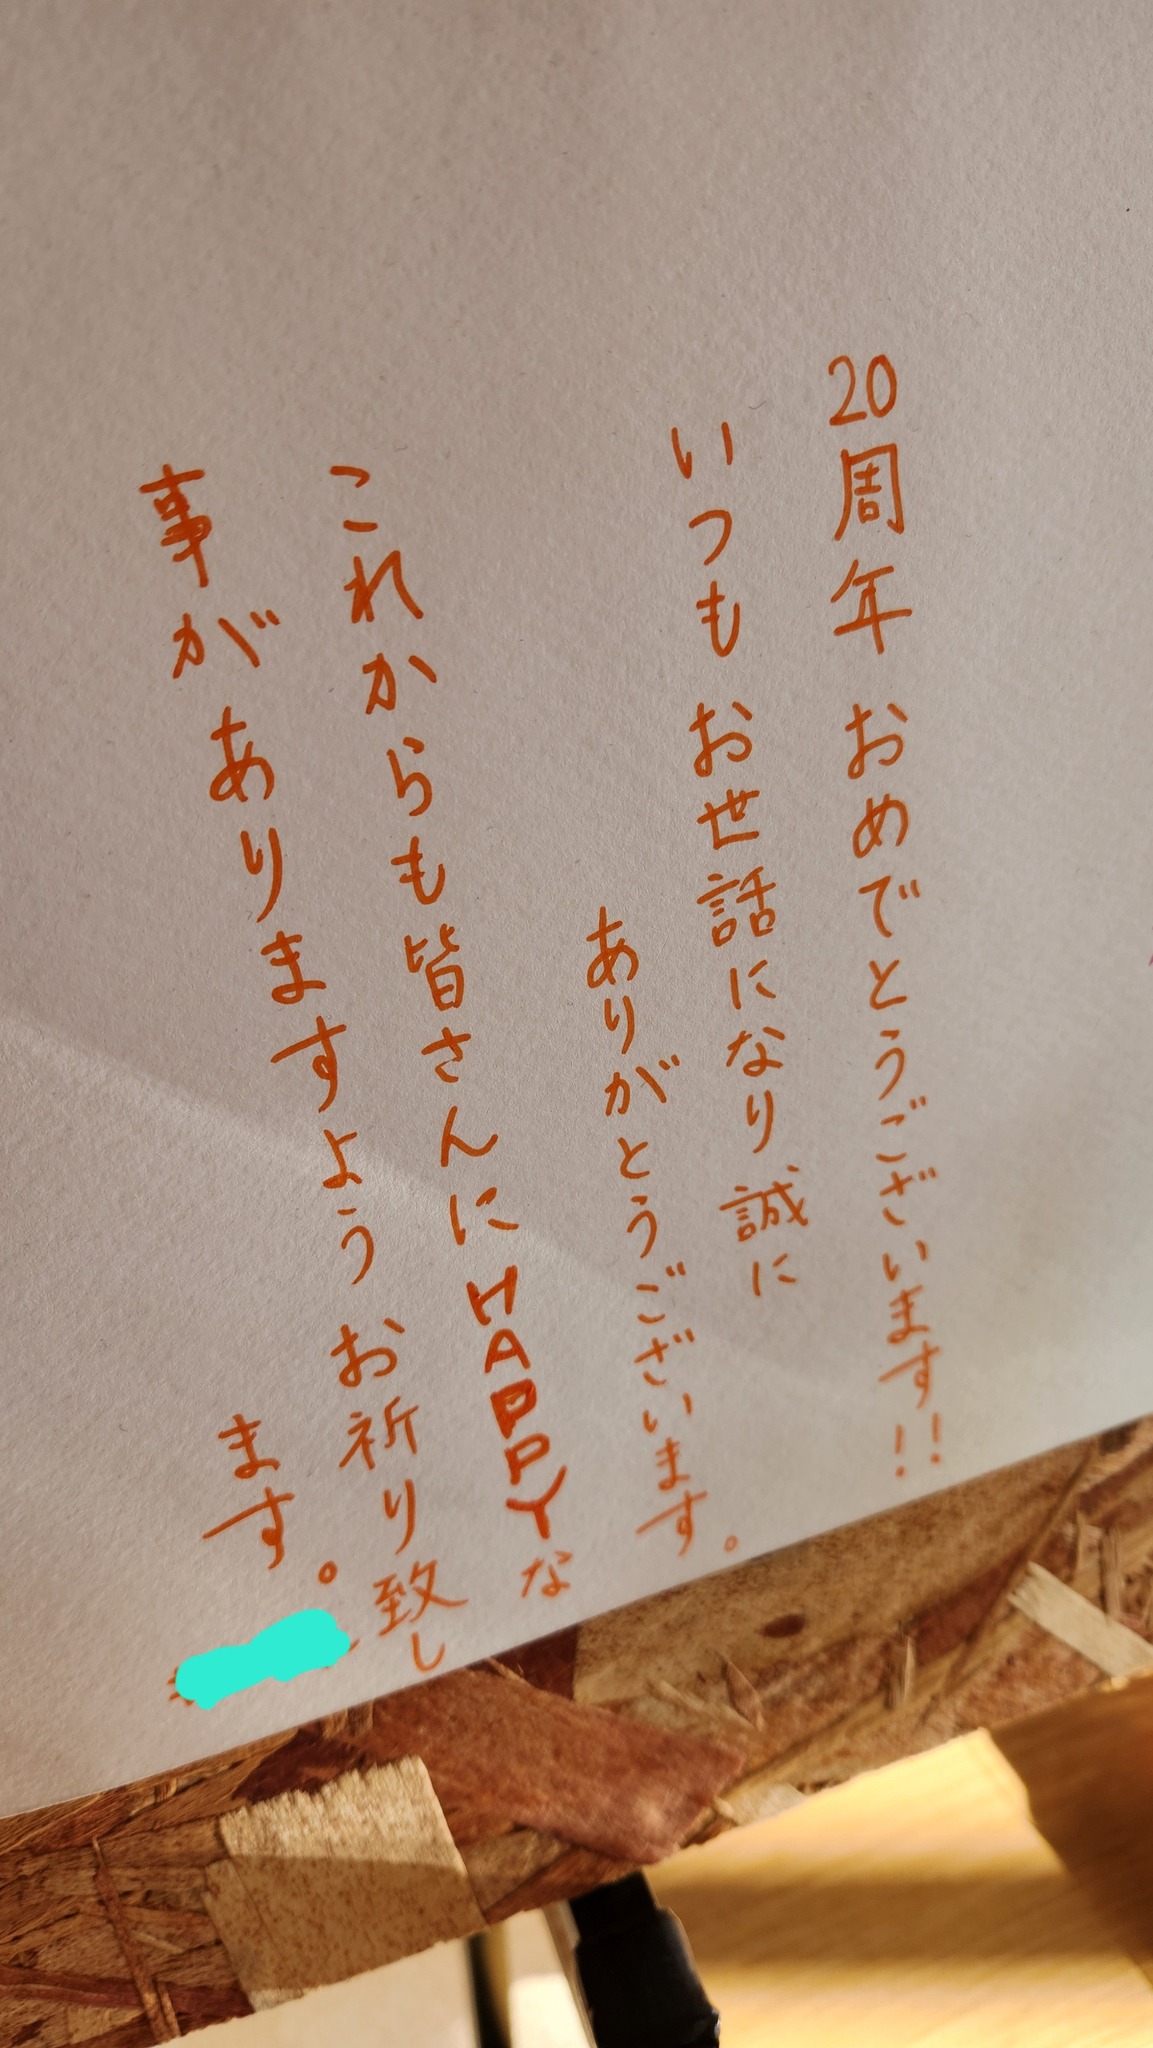 20周年 おめでとうございます!!
いつも お世話になり 誠に
ありがとうございます。
これからも皆さんに HAPPYな
事が ありますよう お祈り致し
ます。